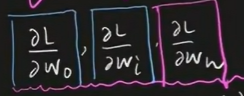 ∂L/∂w₀, ∂L/∂wᵢ, ∂L/∂wₙ